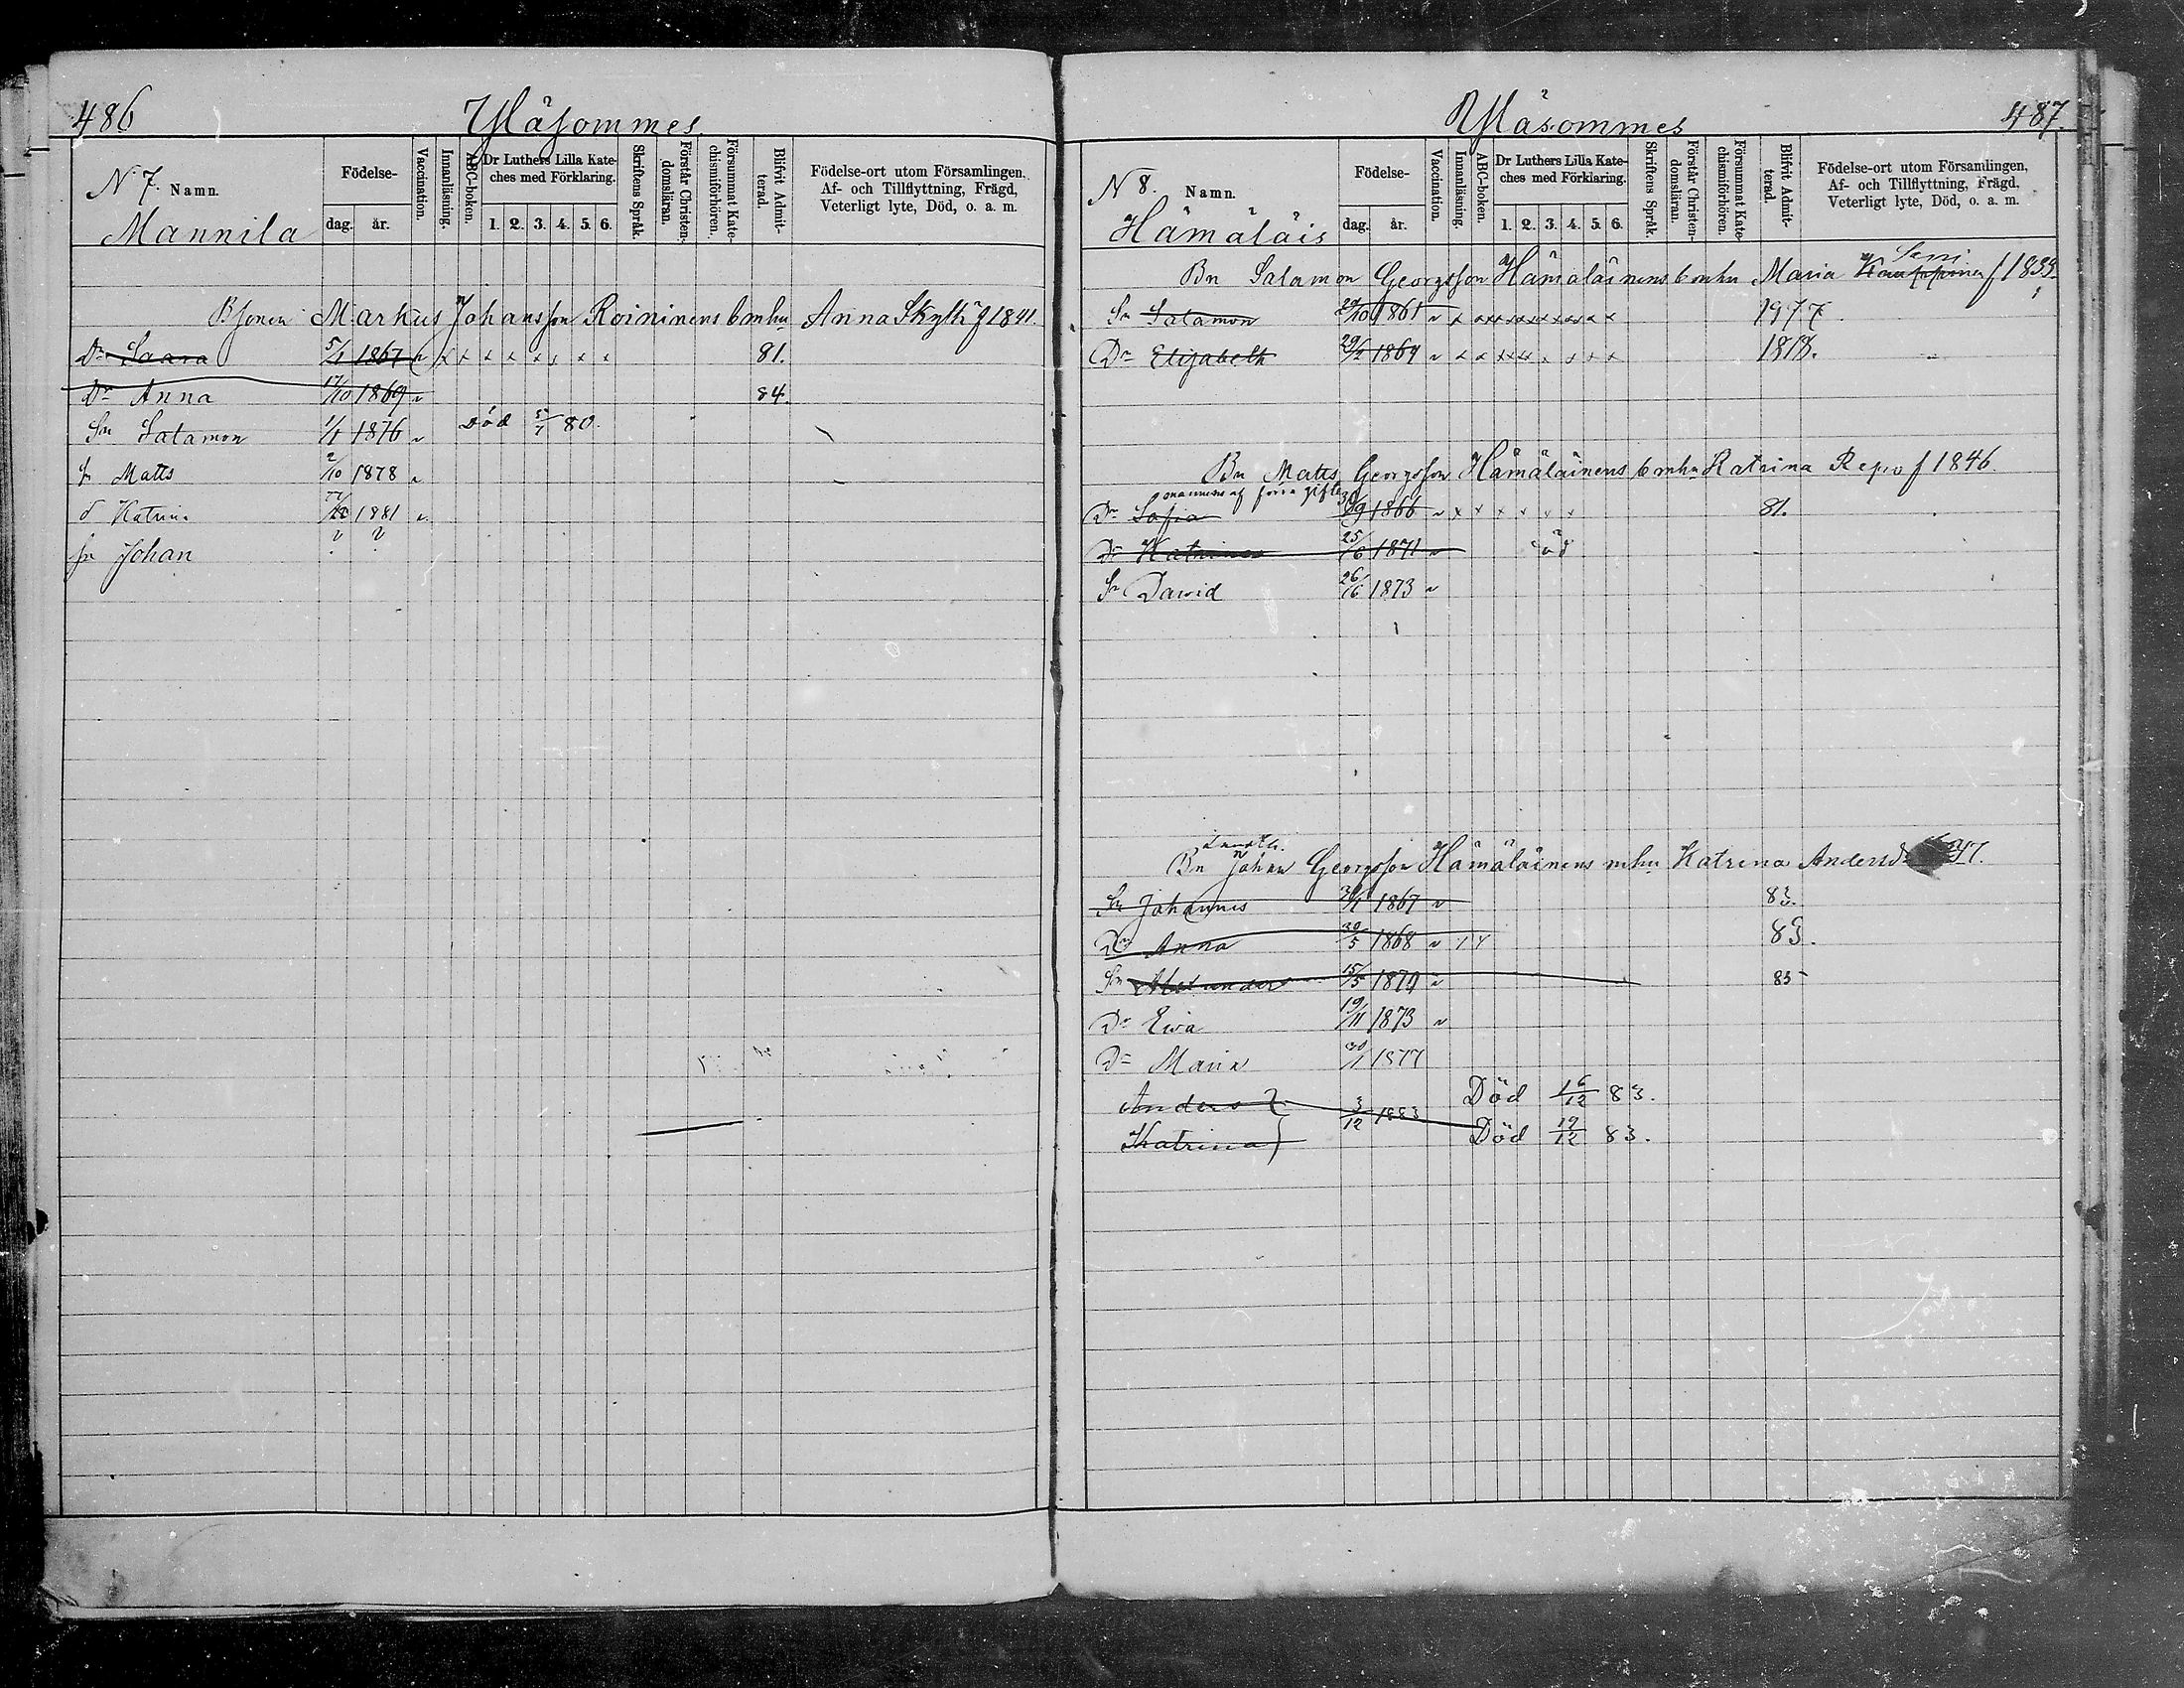 486 Yläsommes
N 7. Namn.
Mannila
Födelse-
dag. år.
Vaccination.
Innanläsning.
ABC-boken.
Dr Luthers Lilla Kate-
ches med Förklaring.
1. 2. 3. 4. 5. 6.
Skriftens Språk.
Förstår Christen-
domsläran.
Försummat Kate-
chismiförhören.
Blifvit Admit-
terad.
Födelse-ort utom Församlingen,
Af- och Tillflyttning, Frägd,
Veterligt lyte, Död, o. a. m.
Markus Johansson Roininens Anna Skyttä f 1841.
Dr Saara 5/1 1867 v x x x x x x x x 81.
Dr Anna 17/10 1869 v 84.
Sn Salamon 1/1 1876 v Död 5/7 80.
s Matts 2/10 1878 v
d Katrina 1881 v
sn Johan
Yläsommes 487.
N 8. Namn.
Hämäläis
Födelse-
dag. år.
Vaccination.
Innanläsning.
ABC-boken.
Dr Luthers Lilla Kate-
ches med Förklaring.
1. 2. 3. 4. 5. 6.
Skriftens Språk.
Förstår Christen-
domsläran.
Försummat Kate-
chismiförhören.
Blifvit Admit-
terad.
Födelse-ort utom Församlingen,
Af- och Tillflyttning, Frägd,
Veterligt lyte, Död, o. a. m.
Bn Salamon Georgsson Hämäläinens Maria f 1839
Sn Salamon 29/10 1861 v 1977
Dr Elisabeth 29/2 1864 v 1818.
Bn Matts Georgsson Hämäläinens Katrina Repo f 1846
Dr Sofia 30/9 1866 v x x x x x x 81.
Dr Katrina 25/6 1871 v öd
Sn David 26/6 1873 v
Bn Johan Georgsson Hämäläinens mhu Katrina Andersdr 47.
Sn Johannes 1867 v 83.
Dr Anna 30/5 1868 v 83.
Sn Alexander 15/5 1870 v 85
Dr Eva 19/11 1873 v
Dr Maria 30/1 1877
Anders } 3/12 1883 Död 16/12 83.
Katrina } Död 19/12 83.